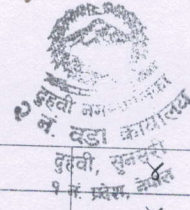 दुहवी नगरपालिका
२ नं. वडा कार्यालय
दुहवी, सुनसरी
१ नं. प्रदेश, नेपाल